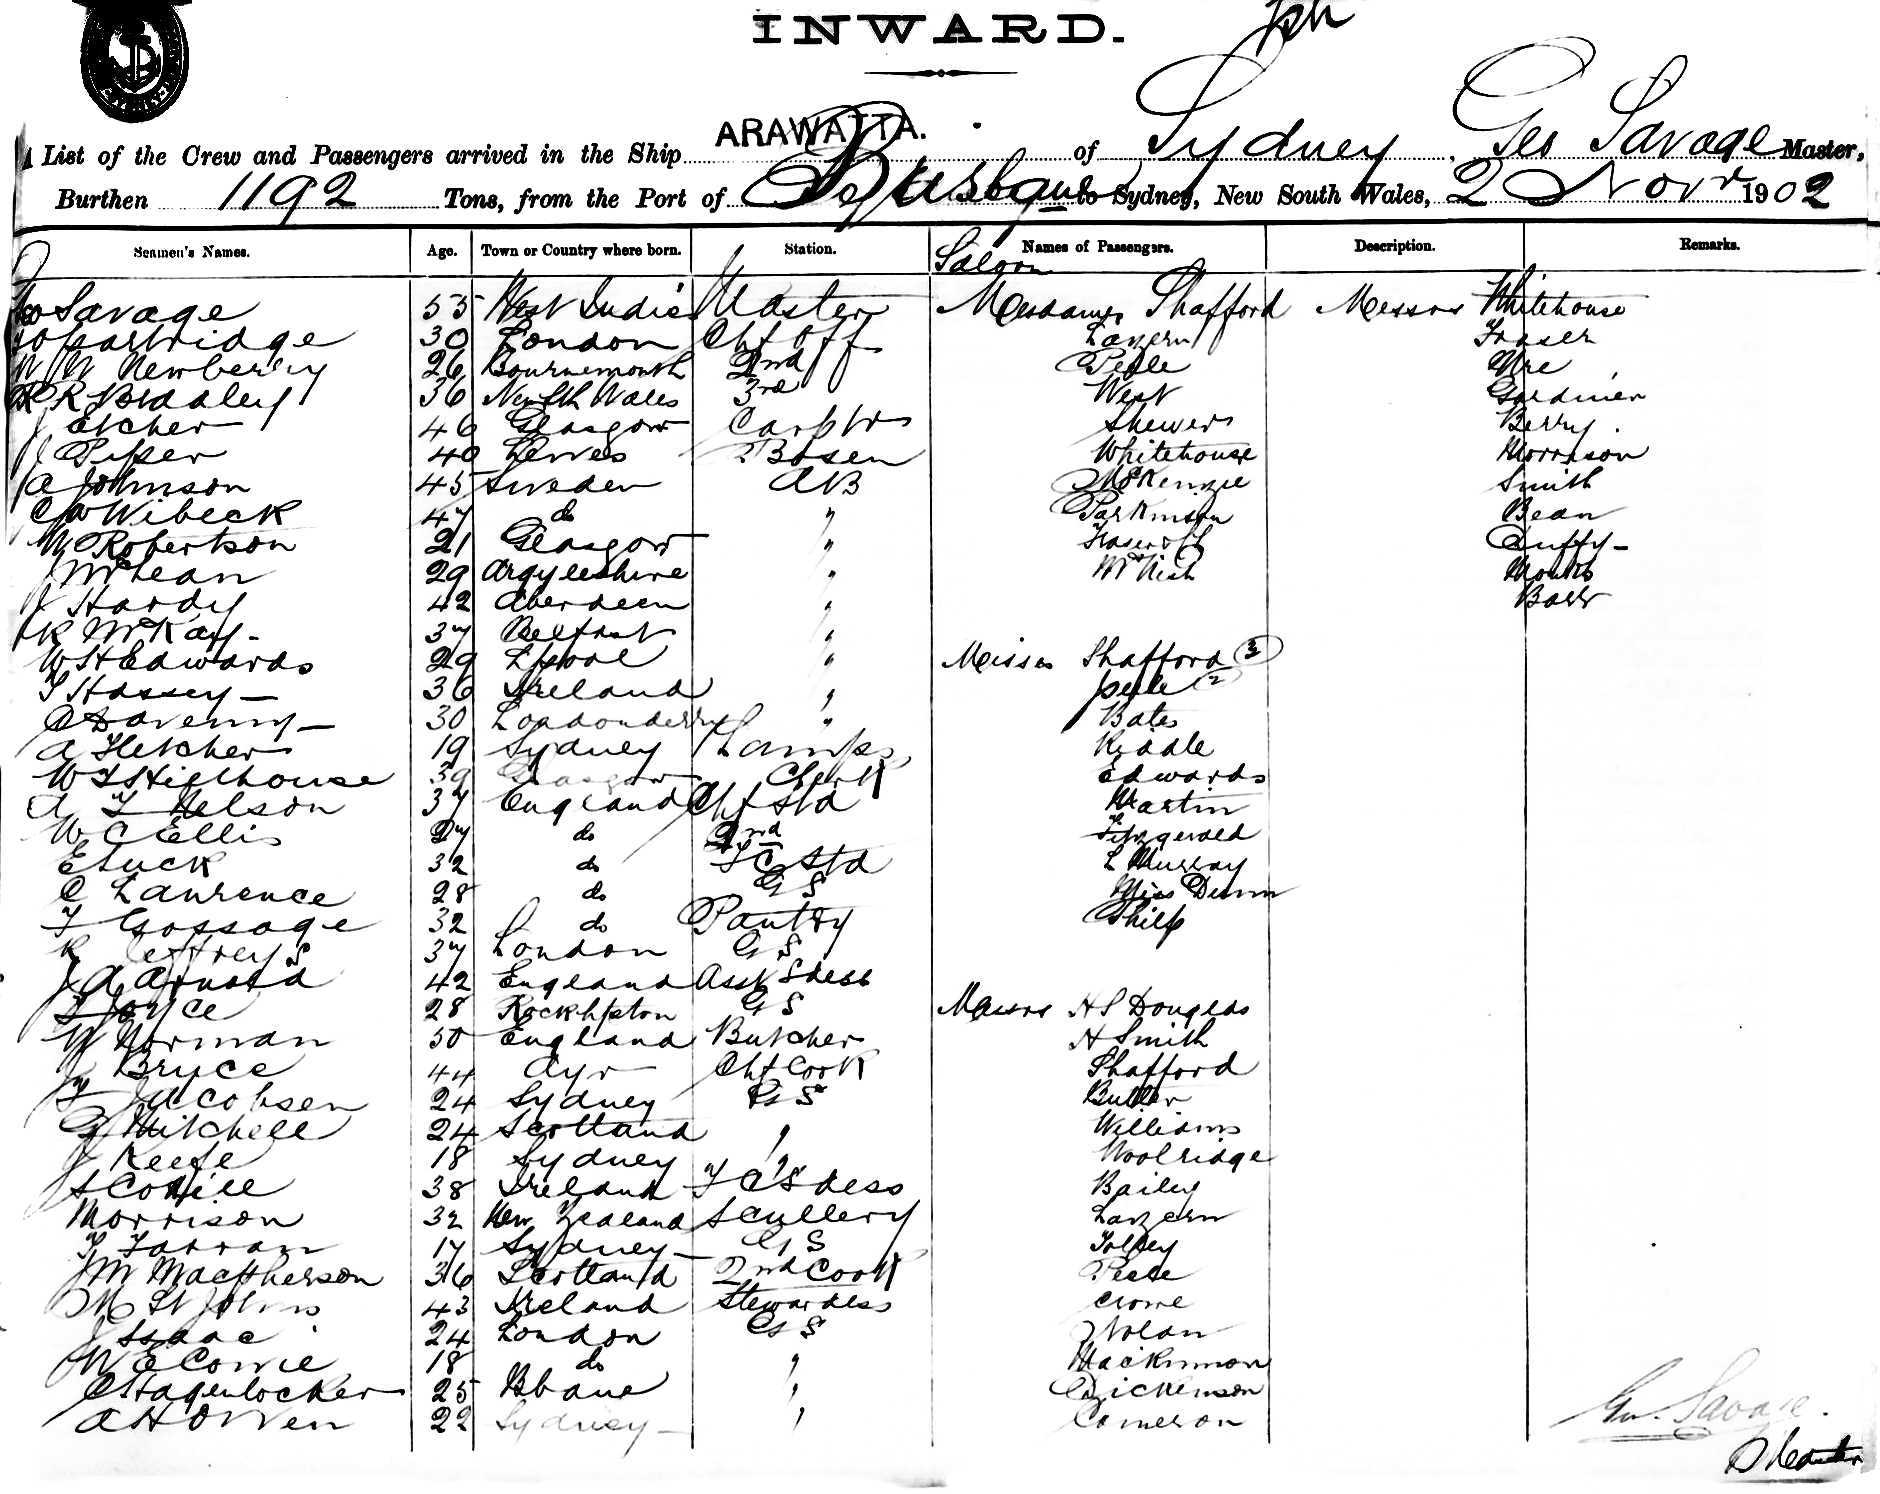 INWARD.
ARAWATTA.
List of the Crew and Passengers arrived in the Ship of Sydney, Geo Savage Master,
Burthen 1192 Tons, from the Port of Brisbane to Sydney, New South Wales, 2 Novr 1902
Seamen's Names. Age. Town or Country where born. Station. Names of Passengers. Description. Remarks.
Saloon
Geo Savage 55 West Indies Master Mesdames Shafford Messrs Whitehouse
Partridge 30 London Chf Off Lazern Fraser
W W Newberry 26 Bournemouth 2nd Peele Ure
R R Bradley 36 North Wales 3rd West Gardiner
J Etcher 46 Glasgow Carptr Shewers Berry
J Piper 40 Lewes Bosen Whitehouse Morrison
A Johnson 45 Sweden AB McKenzie Smith
C W Wibeck 47 do " Parkinson Bean
W Robertson 21 Glasgow " Fraser & Ch Duffy
J McLean 29 Argyleshire " McNish
J Hardy 42 Aberdeen " Barr
R McKay 37 Belfast "
W H Edwards 29 L'pool " Misses Shafford (3)
T Hassey 36 Ireland " Peele (2)
C Davenny 30 Londonderry " Bates
A Fletcher 19 Sydney Lamps Riddle
W S Hillhouse 39 Glasgow Clerk Edwards
A T Nelson 37 England Chf Std Martin
W C Ellis 27 do 2nd Fitzgerald
E Luck 32 do F C Std L Murray
C Lawrence 28 do G S Miss Dunn
F Gossage 32 do Pantry Philp
R Jeffreys 37 London G S
J A Arnold 42 England Asst Stess
Joyce 28 Rockhpton G S Messrs H S Douglas
W Norman 50 England Butcher H Smith
J Bruce 44 Ayr Chf Cook Shafford
Jacobsen 24 Sydney G S Butler
Mitchell 24 Scotland " Williams
J Keefe 18 Sydney " Woolridge
38 Ireland F C S'dess Bailey
Morrison 32 New Zealand Scullery Lazern
F Farran 17 Sydney G S Tolley
J M MacPherson 36 Scotland 2nd Cook Peele
M St Johns 43 Ireland Stewardess Crowe
J Isaac 24 London G S Nolan
W E Cowie 18 do " Mackinnon
C Hagenlocker 25 Bbane " Dickenson
A H Owen 22 Sydney " Cameron
Geo. Savage.